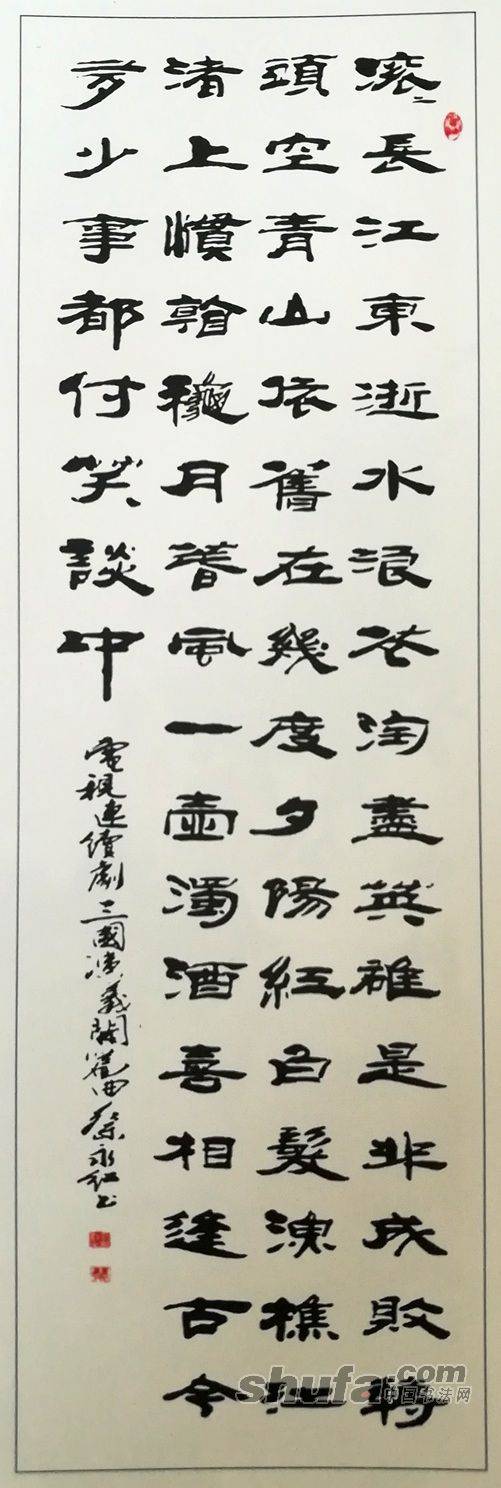 滚〻長江東逝水浪花淘盡英雄是非成敗轉
頭空青山依舊在幾度夕陽紅白髮漁樵江
渚上慣看穐月春風一壺濁酒喜相逢古今
多少事都付笑談中
電視連續劇三國演義開篇曲蔡永紅书
shufa.com
中国书法网